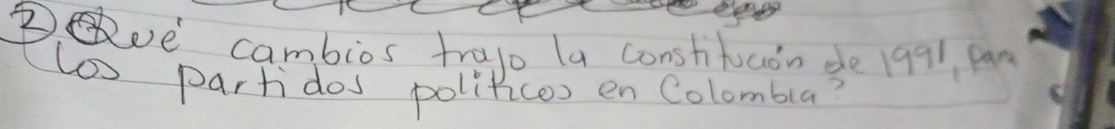 3) Qué cambios trajo la constitución de 1991, para
los partidos políticos en Colombia?